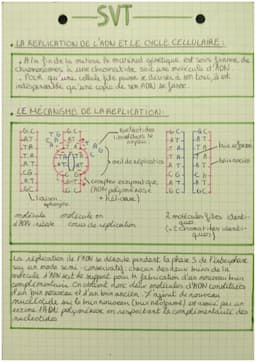 SVT
LA REPLICATION DE L'ADN ET LE CYCLE CELLULAIRE:
A la fin de la mitose, le matériel génétique est sous forme de
chromosomes à une chromatide soit une molécule d'ADN.
POUR qu'une cellule fille puisse se diviser à son tour, il est
indispensable qu'une copie de son ADN se fasse.
LE MECANISME DE LA REPLICATION:
nucléotides
œil de réplication
complexe enzymatique
(ADN polymérase
+ hélicase)
liaison
brin néoformé
brin ancien
molécule
d'ADN
molécule en
cours de réplication
2 molécules filles identi-
ques
(= 2 chromatides identi-
ques)
La réplication de l'ADN se déroule pendant la phase S de l'interphase
selon un mode semi-conservatif: chacun des deux brins de la
molécule d'ADN sert de support pour la fabrication d'un nouveau brin
complémentaire. On obtient donc deux molécules d'ADN constituées
d'un brin nouveau et d'un brin ancien. L'ajout de nouveaux
nucléotides sur le brin nouveau (brin néoformé) est assuré par un
enzyme l'ADN polymérase en respectant la complémentarité des
nucléotides.